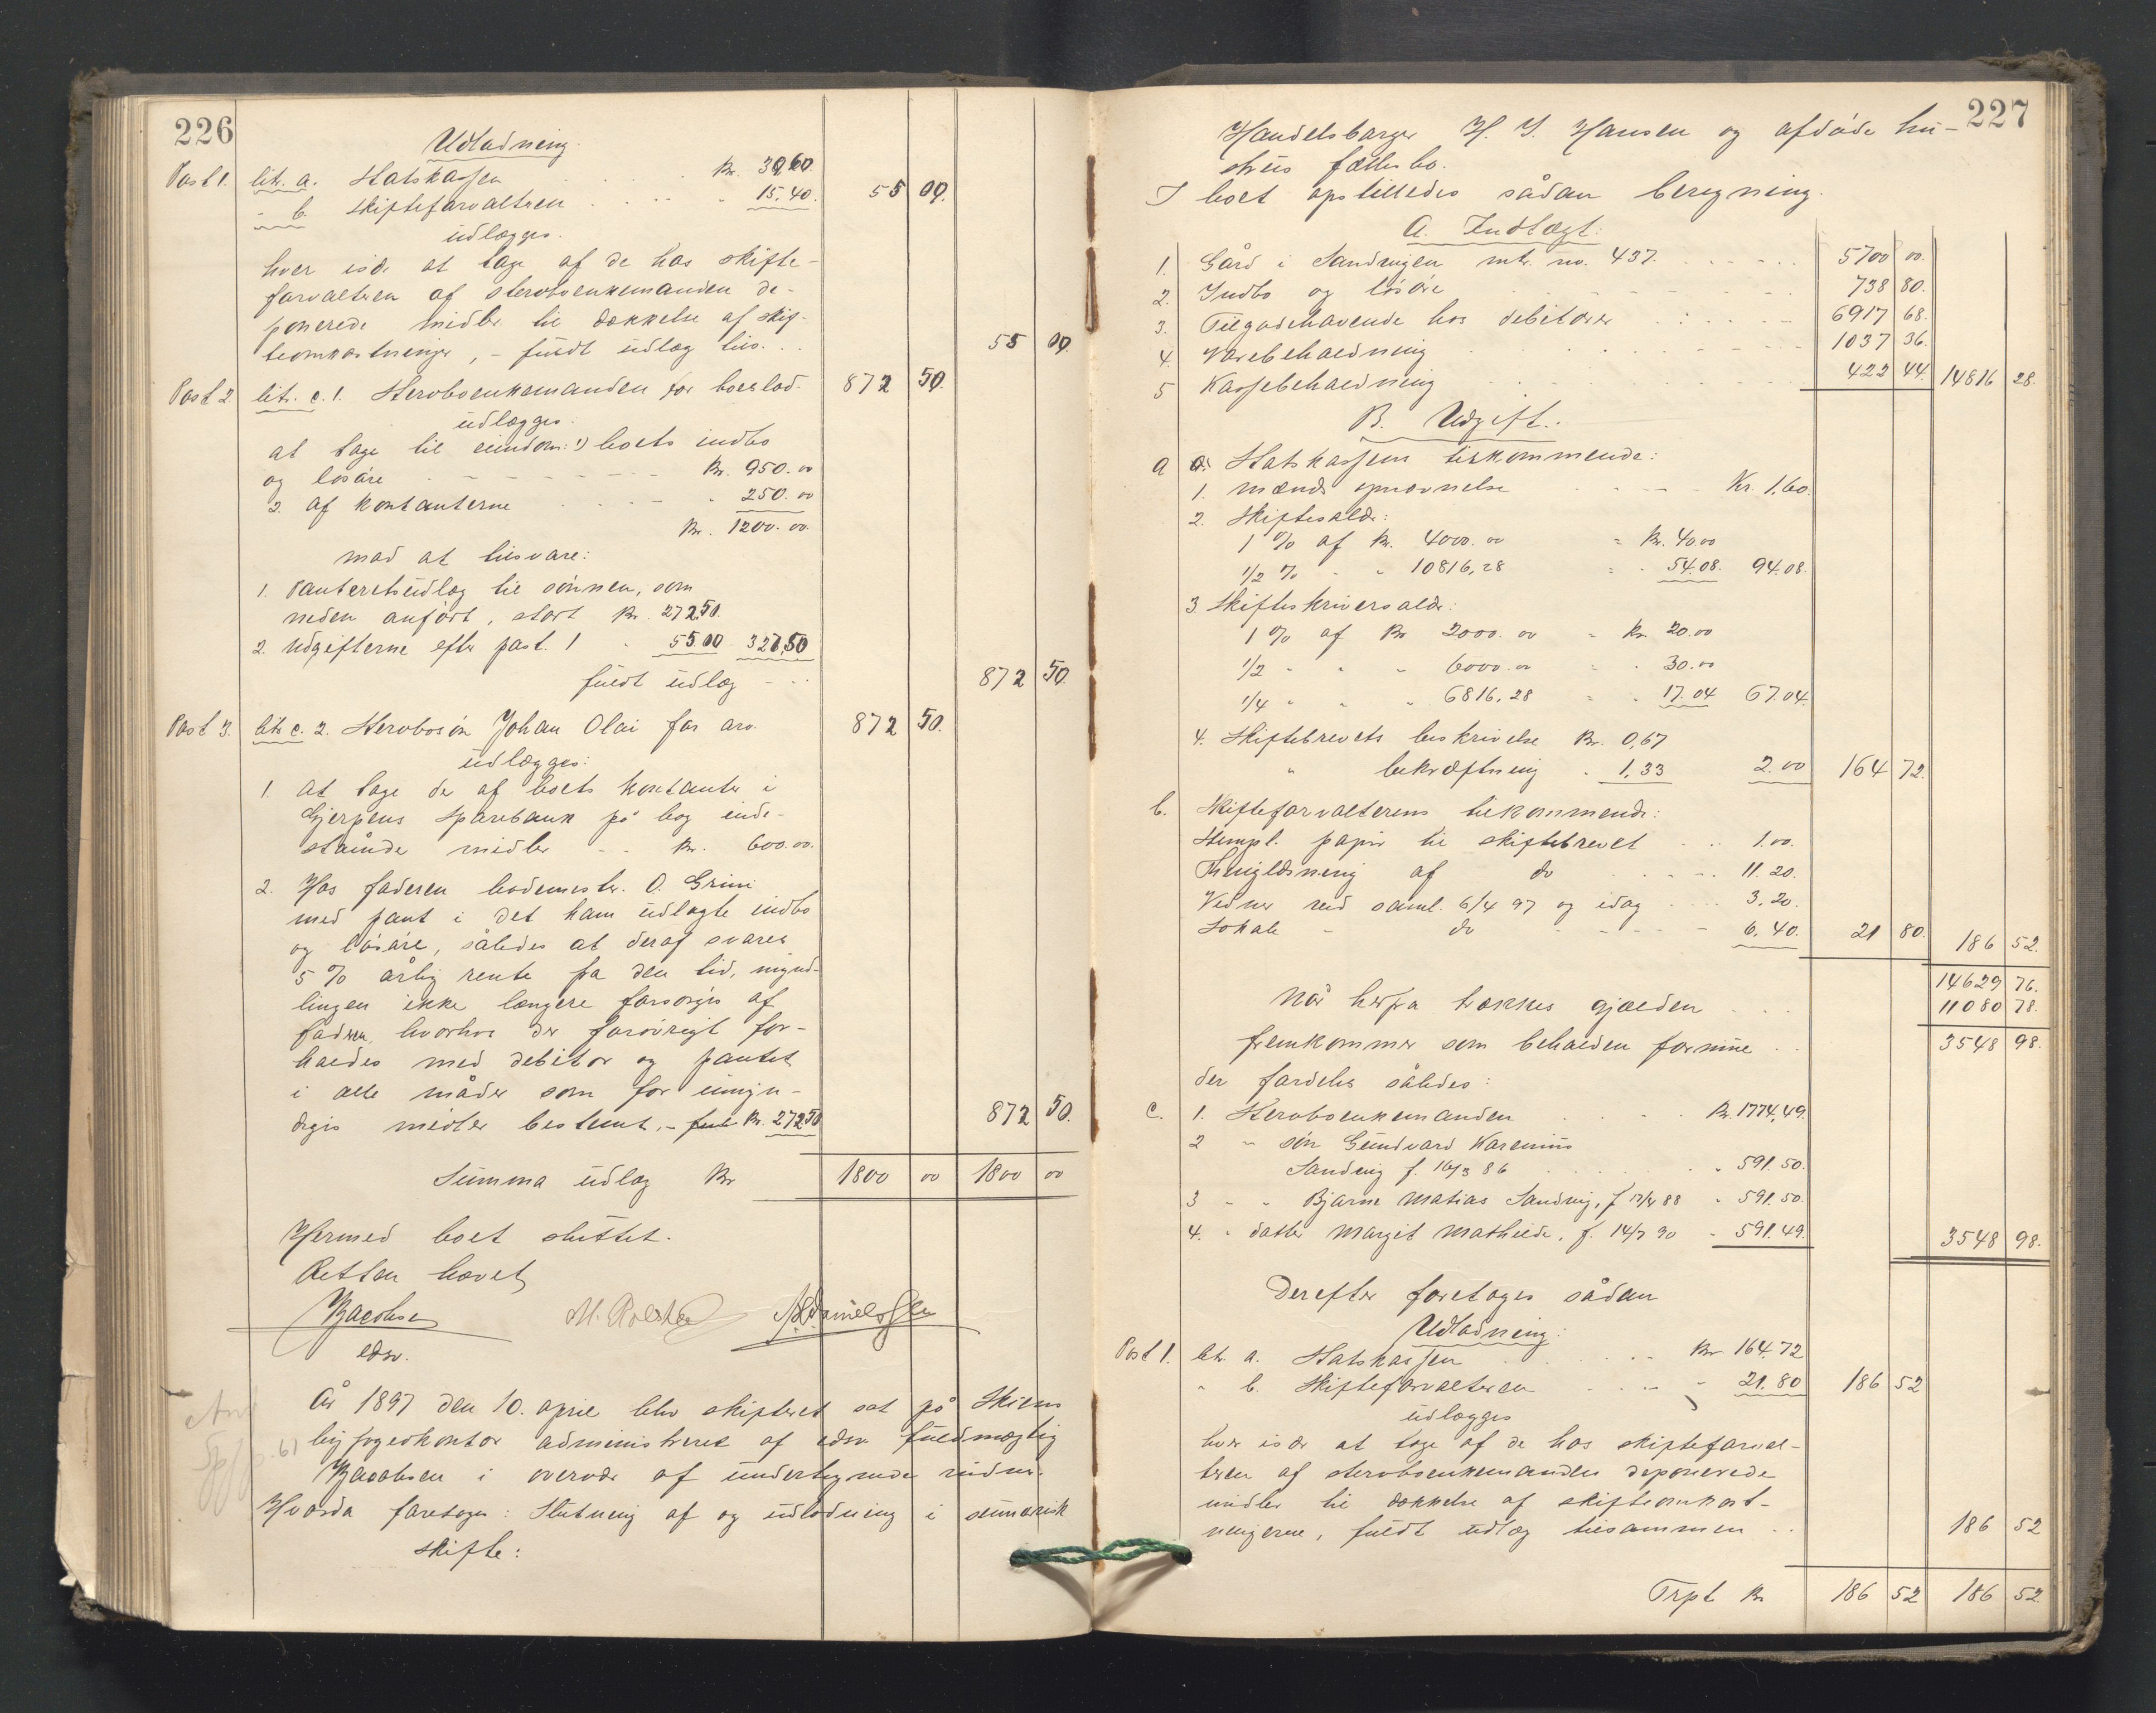 226
Udlodning.
Post 1. litr. a. Statskassen Kr. 39,60.
" b. skifteforvalteren " 15,40. 55 00.
udlægges.
hver især at tage af de hos skifte-
forvalteren af sterboenkemanden de-
ponerede midler til dækkelse af skif-
teomkostninger, - fuldt udlæg tils. 55 00.
Post 2. litr. c. 1. Sterboenkemanden for boeslod. 872 50.
udlægges:
at tage til eiendom: 1) boets indbo
og løsøre Kr. 950.00
2. af kontanterne " 250.00
Kr. 1200.00.
mod at tilsvare:
1. Panteretsudlæg til sønnen, som
neden anført, stort Kr. 272,50.
2. Udgifterne efter post. 1 " 55.00 327,50
fuldt udlæg 872 50.
Post 3. litr. c. 2. Sterbosøn Johan Olai for arv. 872 50.
udlægges:
1. at tage de af boets kontanter i
Gjerpens Sparebank på bog inde-
stående midler Kr. 600.00.
2. Hos faderen bademester O. Grini
med pant i det ham udlagte indbo
og løsøre, således at deraf svares
5 % årlig rente fra den tid, mynd-
lingen ikke længere forsørges af
faderen, hvorhos der forøvrigt for-
holdes med debitor og pantet
i alle måder som for umyn-
diges midler bestemt, - Kr. 272,50 872 50.
Summa udlæg Kr 1800 00 1800 00
Hermed boet sluttet.
Retten hævet
Jacobsen M. Rolstad Danielssen
edsv.
År 1897 den 10. april blev skifteret sat på Skiens
byfogedkontor administreret af edsv. fuldmægtig
Jacobsen i overvær af undertegnede vidner.
Hvorda foretoges: Slutning af og udlodning i summarisk
skifte:
227
Handelsborger H. J. Hansen og afdøde hu-
strus fællesbo.
I boet opstilledes sådan beregning.
A. Indtægt:
1. Gård i Sandvigen mtr. no. 437. 5700 00.
2. Indbo og løsøre 738 80.
3. Tilgodehavende hos debitorer 6917 68.
4. Varebeholdning 1037 36.
5 Kassebeholdning 422 44. 14816 28.
B. Udgift.
a Statskassen tilkommende:
1. mænds opnævnelse Kr. 1,60.
2. Skiftesaldr:
1 % af Kr. 4000.00 = Kr. 40.00
1/2 % " " 10816,28 = " 54.08. 94.08.
3. Skifteskriversaldr:
1 % af Kr 2000.00 = Kr. 20.00
1/2 " " " 6000.00 = " 30.00
1/4 " " " 6816,28 = " 17.04 67.04.
4. Skiftebrevets beskrivelse Kr. 0,67
" bekræftning " 1,33 2.00 164 72.
b. Skifteforvalterens tilkommende:
Stempl. papir til skiftebrevet 1.00.
Thinglæsning af do 11.20.
Vidner ved saml. 6/4 97 og idag 3.20.
Lokale " do 6.40. 21 80. 186 52.
14629 76.
Når herfra trækkes gjælden 11080 78.
fremkommer som beholden formue 3548 98.
der fordeles således:
c. 1. Sterboenkemanden Kr. 1774,49.
2 " søn Gundvard Karenius
Sandvig f. 16/3 86 " 591.50.
3 " " Bjarne Matias Sandvig, f 12/4 88 " 591.50.
4. " datter Margit Mathilde, f. 14/7 90 " 591.49. 3548 98.
Derefter foretoges sådan
Udlodning:
Post 1. litr. a. Statskassen Kr 164.72
" b. Skifteforvalteren " 21.80 186 52
udlægges
hver især at tage af de hos skifteforval-
teren af sterboenkemanden deponerede
midler til dækkelse af skifteomkost-
ningerne, fuldt udlæg tilsammen 186 52
Trpt Kr 186 52 186 52